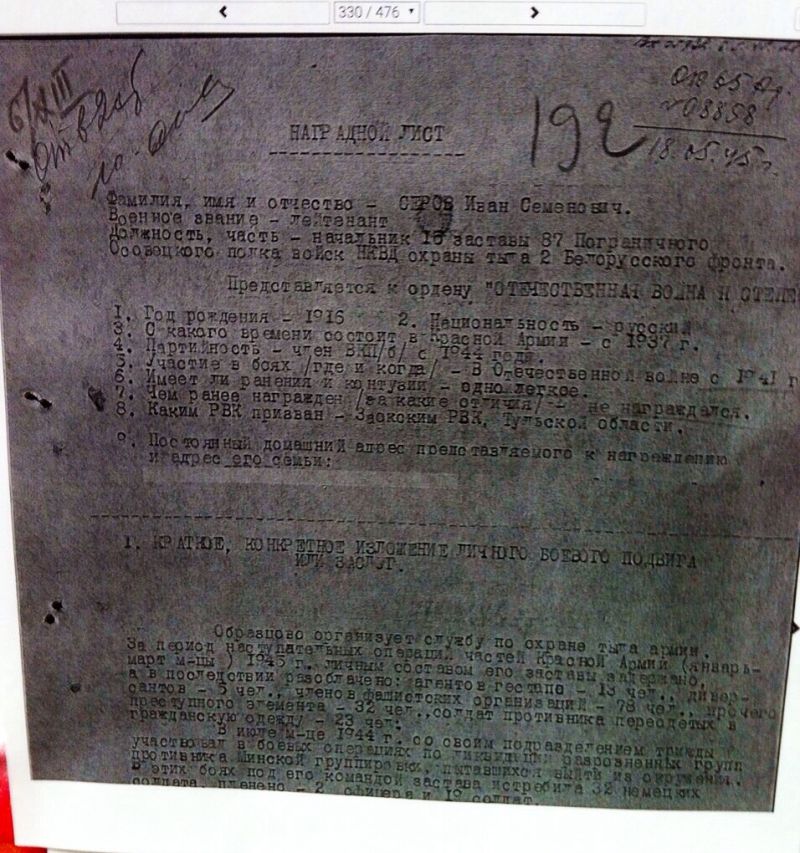 330 / 476
192
18.05.45г.
НАГРАДНОЙ ЛИСТ
Фамилия, имя и отчество - СЕРОВ Иван Семенович.
Военное звание - лейтенант
Должность, часть - начальник 15 заставы 87 Пограничного
Осовецкого полка войск НКВД охраны тыла 2 Белорусского фронта.
Представляется к ордену "ОТЕЧЕСТВЕННАЯ ВОЙНА
1. Год рождения - 1916 2. Национальность - русский
3. С какого времени состоит в Красной Армии - с 1937 г.
4. Партийность - член ВКП/б/ с 1944 года.
5. Участие в боях /где и когда/ - В Отечественной войне с 1941 г
6. Имеет ли ранения и контузии - одно легкое.
7. Чем ранее награжден /за какие отличия/ - не награждался.
8. Каким РВК призван - Заокским РВК, Тульской области.
9. Постоянный домашний адрес представляемого к награждению
и адрес его семьи:
1. КРАТКОЕ, КОНКРЕТНОЕ ИЗЛОЖЕНИЕ ЛИЧНОГО БОЕВОГО ПОДВИГА
ИЛИ ЗАСЛУГ.
Образцово организует службу по охране тыла армии.
За период наступательных операций частей Красной Армии (январь-
март м-цы ) 1945 г. личным составом его заставы задержано,
а в последствии разоблачено: агентов гестапо - 13 чел., дивер-
сантов - 5 чел., членов фашистских организаций - 78 чел., прочего
преступного элемента - 32 чел., солдат противника переодетых в
гражданскую одежду - 23 чел.
В июле м-це 1944 г. со своим подразделением трижды
участвовал в боевых операциях по ликвидации разрозненных групп
противника Минской группировки, пытавшихся выйти из окружения.
В этих боях под его командой застава истребила 32 немецких
солдата, пленено - 2 офицера и солдат.